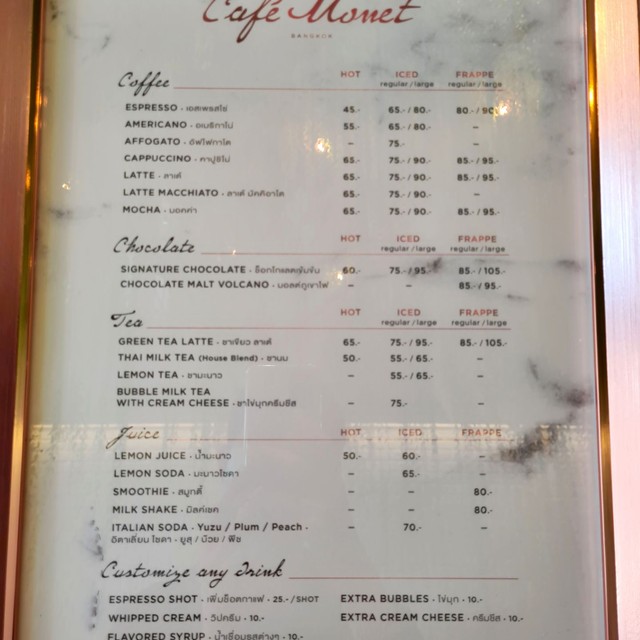 Café Monet
BANGKOK
Coffee HOT ICED FRAPPE
regular / large regular / large
ESPRESSO - เอสเพรสโซ่ 45.- 65.- / 80.- 80.- / 90.-
AMERICANO - อเมริกาโน่ 55.- 65.- / 80.- –
AFFOGATO - อัฟโฟกาโต – 75.- –
CAPPUCCINO - คาปูชิโน่ 65.- 75.- / 90.- 85.- / 95.-
LATTE - ลาเต้ 65.- 75.- / 90.- 85.- / 95.-
LATTE MACCHIATO - ลาเต้ มัคคิอาโต 65.- 75.- / 90.- –
MOCHA - มอคค่า 65.- 75.- / 90.- 85.- / 95.-
Chocolate HOT ICED FRAPPE
regular / large regular / large
SIGNATURE CHOCOLATE - ช็อกโกแลตเข้มข้น 60.- 75.- / 95.- 85.- / 105.-
CHOCOLATE MALT VOLCANO - มอลต์ภูเขาไฟ – – 85.- / 95.-
Tea HOT ICED FRAPPE
regular / large regular / large
GREEN TEA LATTE - ชาเขียว ลาเต้ 65.- 75.- / 95.- 85.- / 105.-
THAI MILK TEA (House Blend) - ชานม 50.- 55.- / 65.- –
LEMON TEA - ชามะนาว – 55.- / 65.- –
BUBBLE MILK TEA
WITH CREAM CHEESE - ชาไข่มุกครีมชีส – 75.- –
Juice HOT ICED FRAPPE
LEMON JUICE - น้ำมะนาว 50.- 60.- –
LEMON SODA - มะนาวโซดา – 65.- –
SMOOTHIE - สมูทตี้ – – 80.-
MILK SHAKE - มิลค์เชค – – 80.-
ITALIAN SODA - Yuzu / Plum / Peach - – 70.- –
อิตาเลี่ยน โซดา - ยูสุ / บ๊วย / พีช
Customize any drink
ESPRESSO SHOT - เพิ่มช็อตกาแฟ - 25.- / SHOT EXTRA BUBBLES - ไข่มุก - 10.-
WHIPPED CREAM - วิปครีม - 10.- EXTRA CREAM CHEESE - ครีมชีส - 10.-
FLAVORED SYRUP - น้ำเชื่อมรสต่างๆ - 10.-